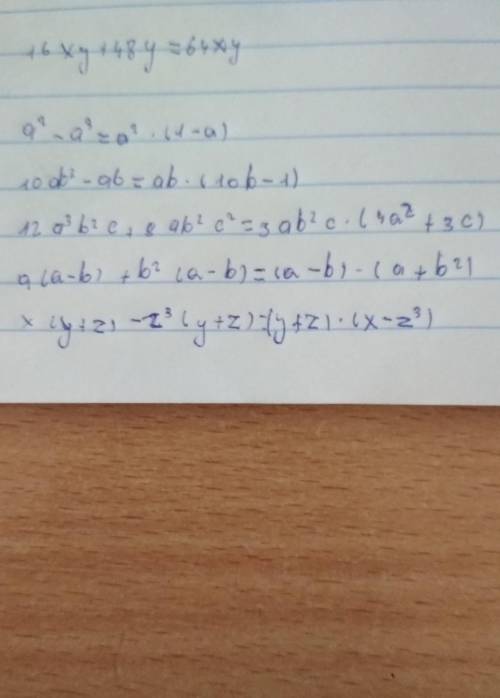 16xy+48y=64xy
a² - a³ = a² · (1-a)
10ab² - ab = ab · (10b-1)
12a³b²c + 9ab²c² = 3ab²c · (4a² + 3c)
a(a-b) + b² (a-b) = (a-b) · (a + b²)
x (y+z) - z³ (y+z) = (y+z) · (x - z³)